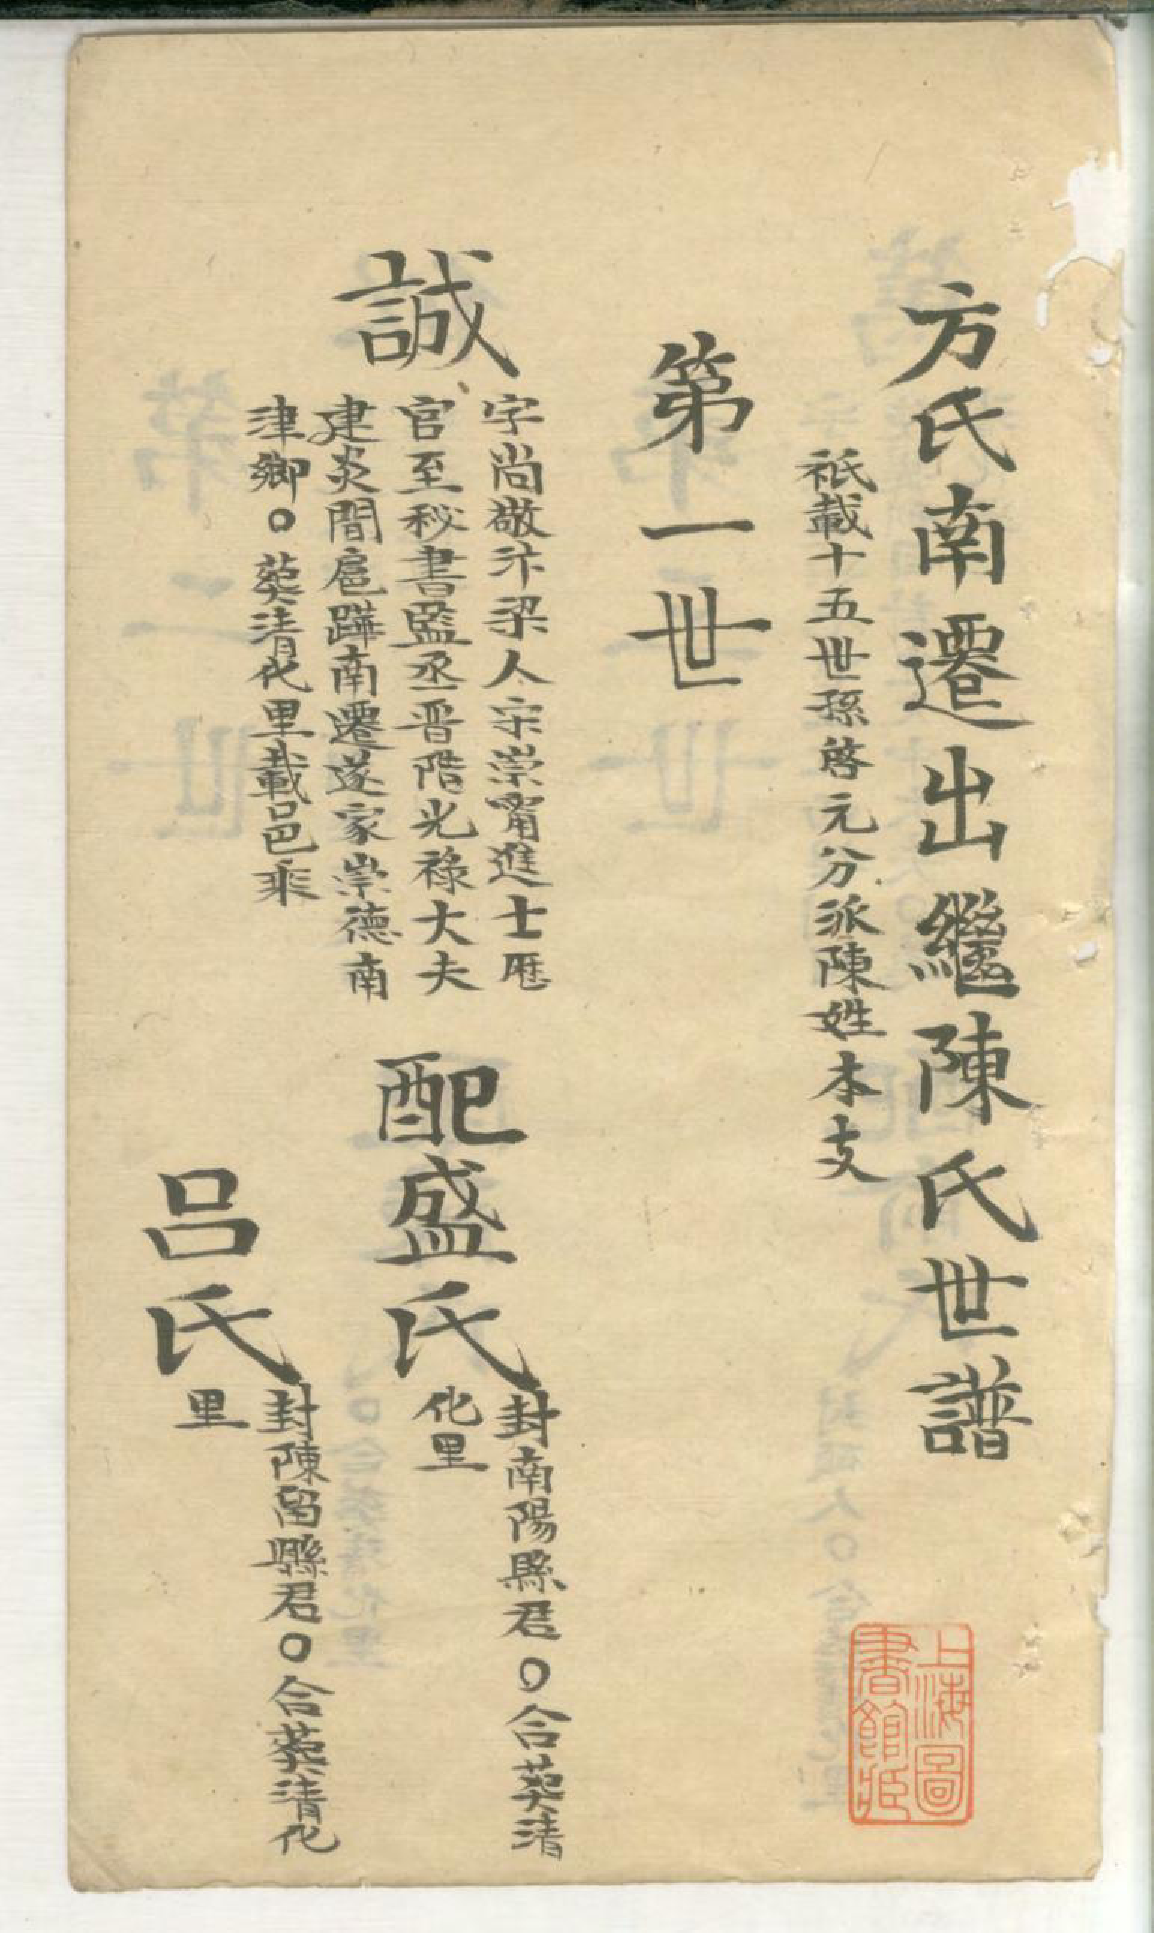 方氏南遷出繼陳氏世譜
祇載十五世孫啓元分派陳姓本支
第一世
誠
字尚敬汴梁人宋崇甯進士歷
官至秘書監丞晋階光祿大夫
建炎間扈蹕南遷遂家崇德南
津鄉〇葬清化里載邑乘
配盛氏
封南陽縣君〇合葬清
化里
呂氏
封陳留縣君〇合葬清化
里
上海圖
書館藏